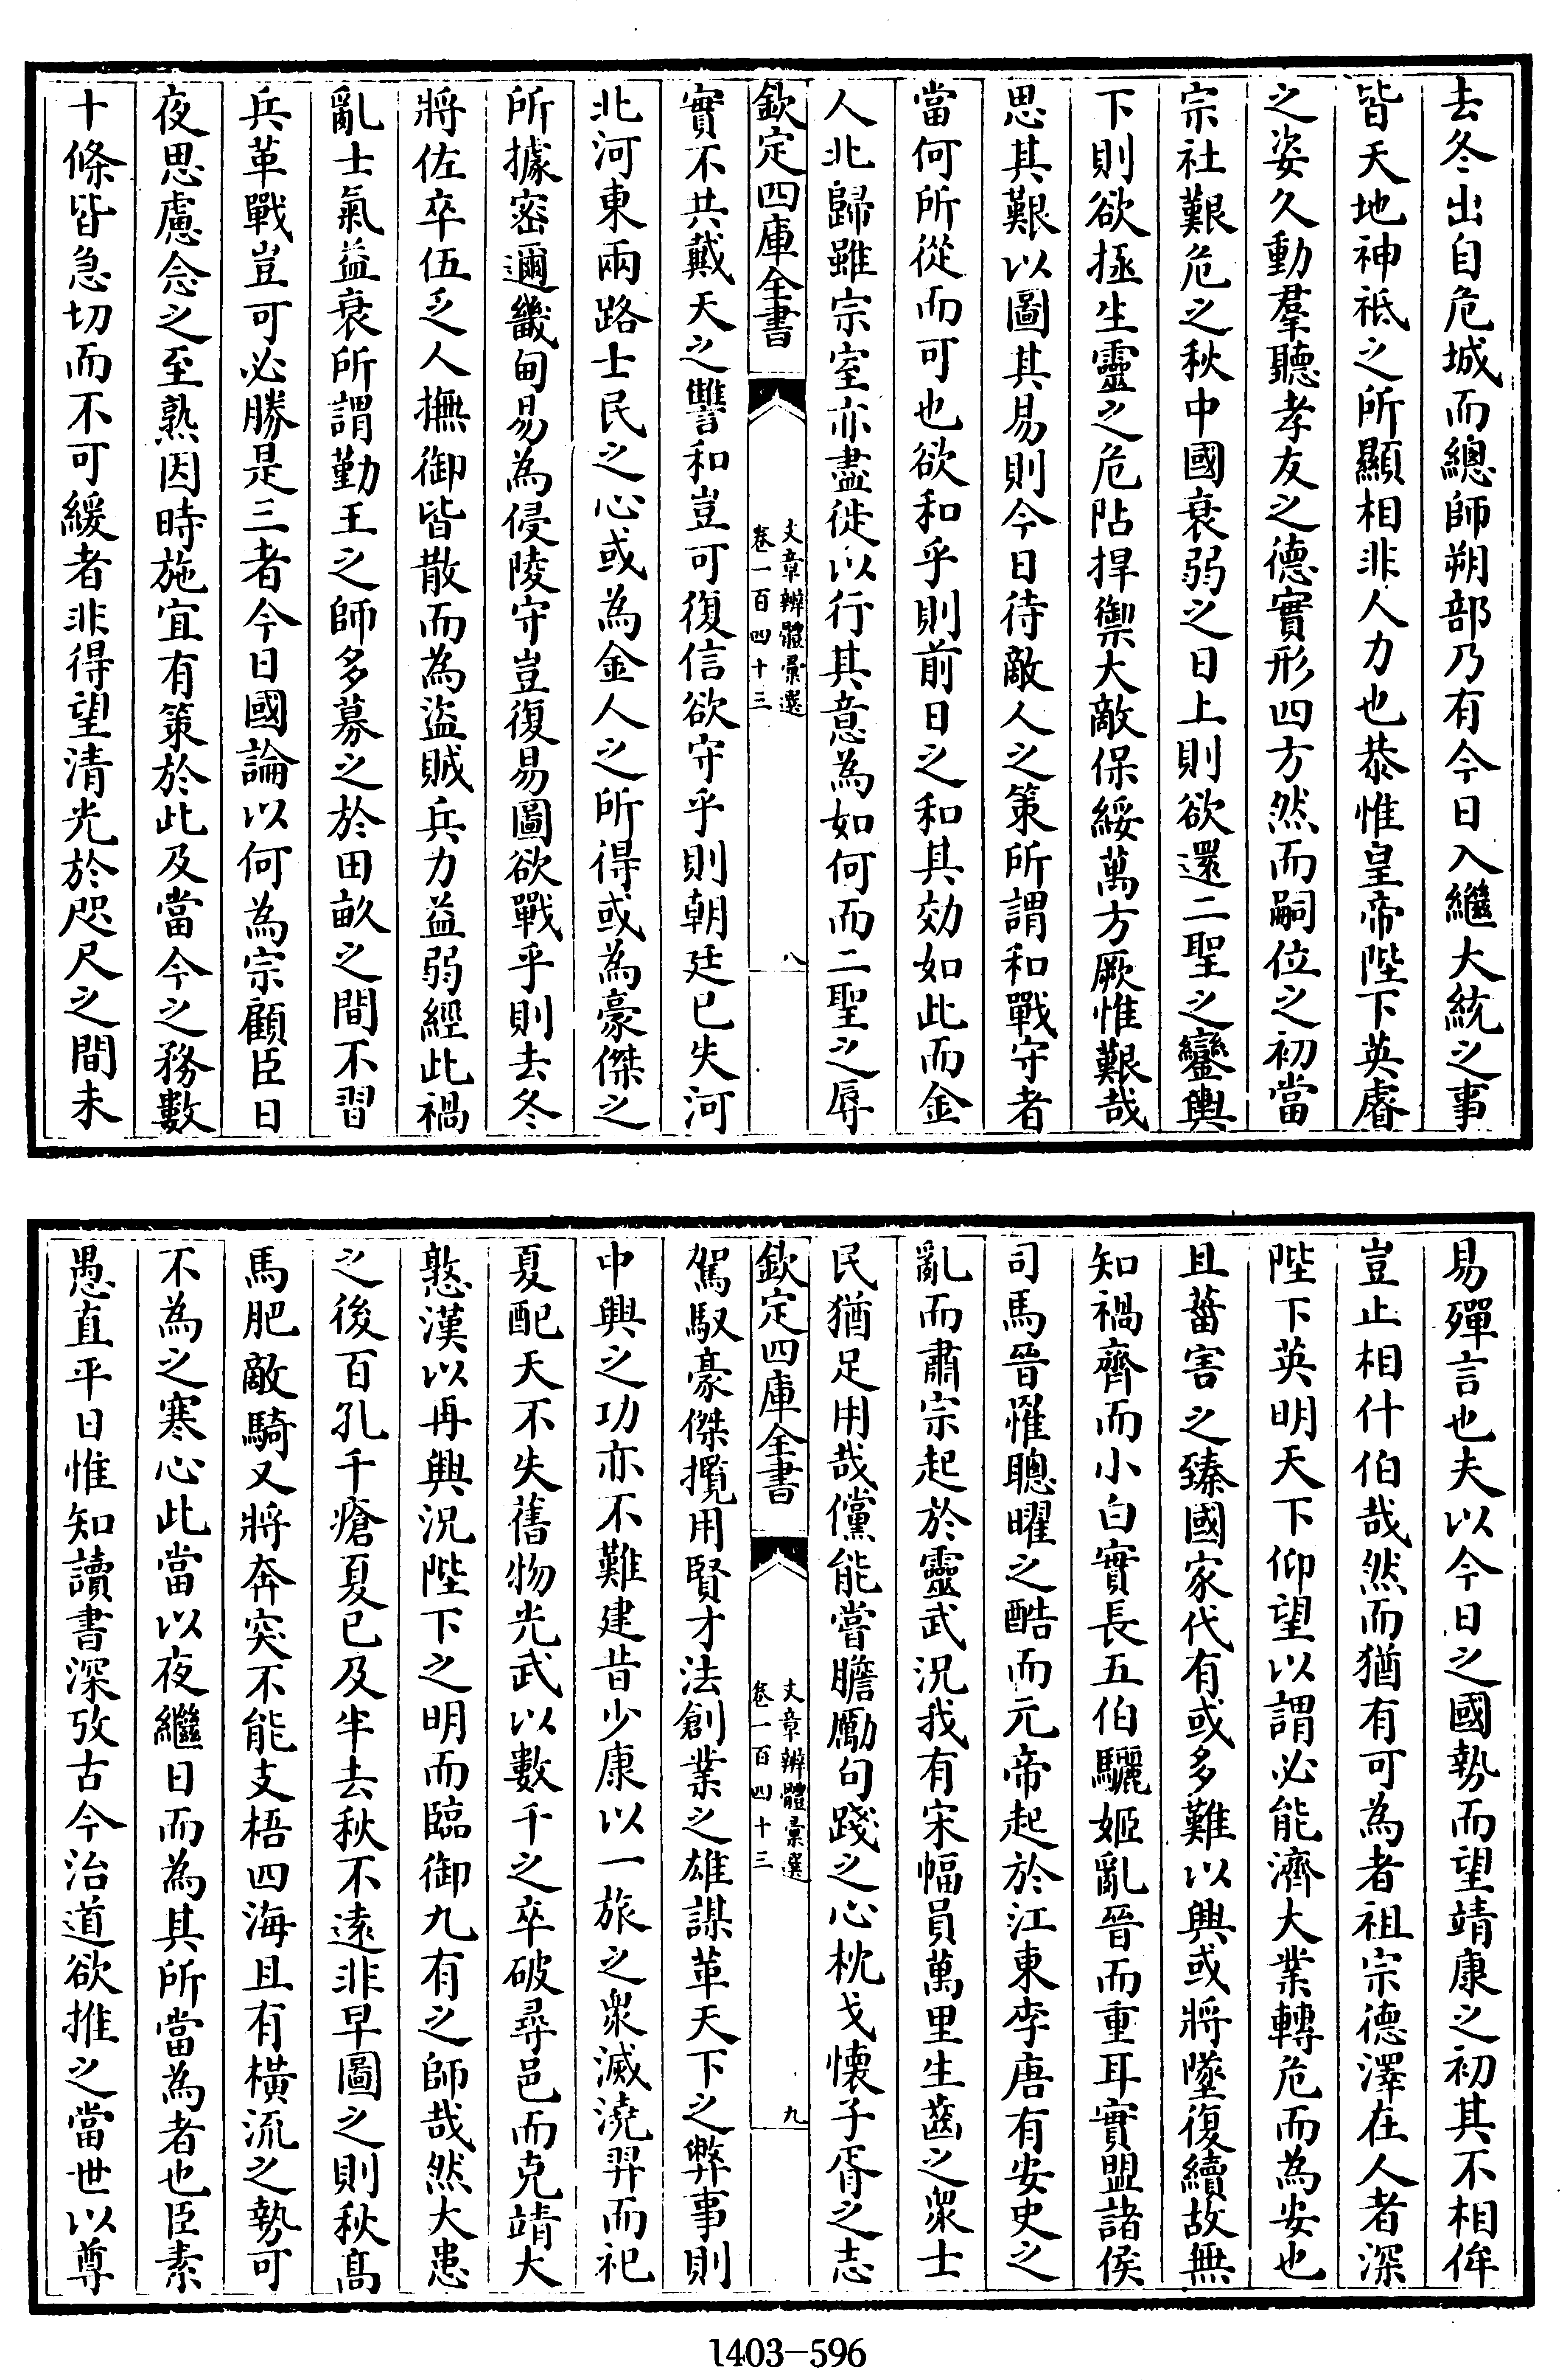 去冬出自危城而總師朔部乃有今日入繼大統之事
皆天地神祗之所顯相非人力也恭惟皇帝陛下英睿
之姿久動羣聽孝友之德實形四方然而嗣位之初當
宗社艱危之秋中國衰弱之日上則欲還二聖之鑾輿
下則欲拯生靈之危阽捍禦大敵保綏萬方厥惟艱哉
思其艱以圖其易則今日待敵人之策所謂和戰守者
當何所從而可也欲和乎則前日之和其効如此而金
人北歸雖宗室亦盡徙以行其意為如何而二聖之辱
欽定四庫全書
文章辨體彙選
卷一百四十三
八
實不共戴天之讐和豈可復信欲守乎則朝廷已失河
北河東兩路士民之心或為金人之所得或為豪傑之
所據密邇畿甸易為侵陵守豈復易圖欲戰乎則去冬
將佐卒伍乏人撫御皆散而為盜賊兵力益弱經此禍
亂士氣益衰所謂勤王之師多募之於田畝之間不習
兵革戰豈可必勝是三者今日國論以何為宗顧臣日
夜思慮念之至熟因時施宜有策於此及當今之務數
十條皆急切而不可緩者非得望清光於咫尺之間未
易殫言也夫以今日之國勢而望靖康之初其不相侔
豈止相什伯哉然而猶有可為者祖宗德澤在人者深
陛下英明天下仰望以謂必能濟大業轉危而為安也
且葘害之臻國家代有或多難以興或將墜復續故無
知禍齊而小白實長五伯驪姬亂晉而重耳實盟諸侯
司馬晉罹聰曜之酷而元帝起於江東李唐有安史之
亂而肅宗起於靈武況我有宋幅員萬里生齒之衆士
民猶足用哉儻能嘗膽勵句踐之心枕戈懐子胥之志
欽定四庫全書
文章辨體彙選
卷一百四十三
九
駕馭豪傑攬用賢才法創業之雄謀革天下之弊事則
中興之功亦不難建昔少康以一旅之衆滅澆羿而祀
夏配天不失舊物光武以數千之卒破尋邑而克靖大
憝漢以再興況陛下之明而臨御九有之師哉然大患
之後百孔千瘡夏已及半去秋不逺非早圖之則秋髙
馬肥敵騎又將奔突不能支梧四海且有橫流之勢可
不為之寒心此當以夜繼日而為其所當為者也臣素
愚直平日惟知讀書深攷古今治道欲推之當世以尊
1403-596